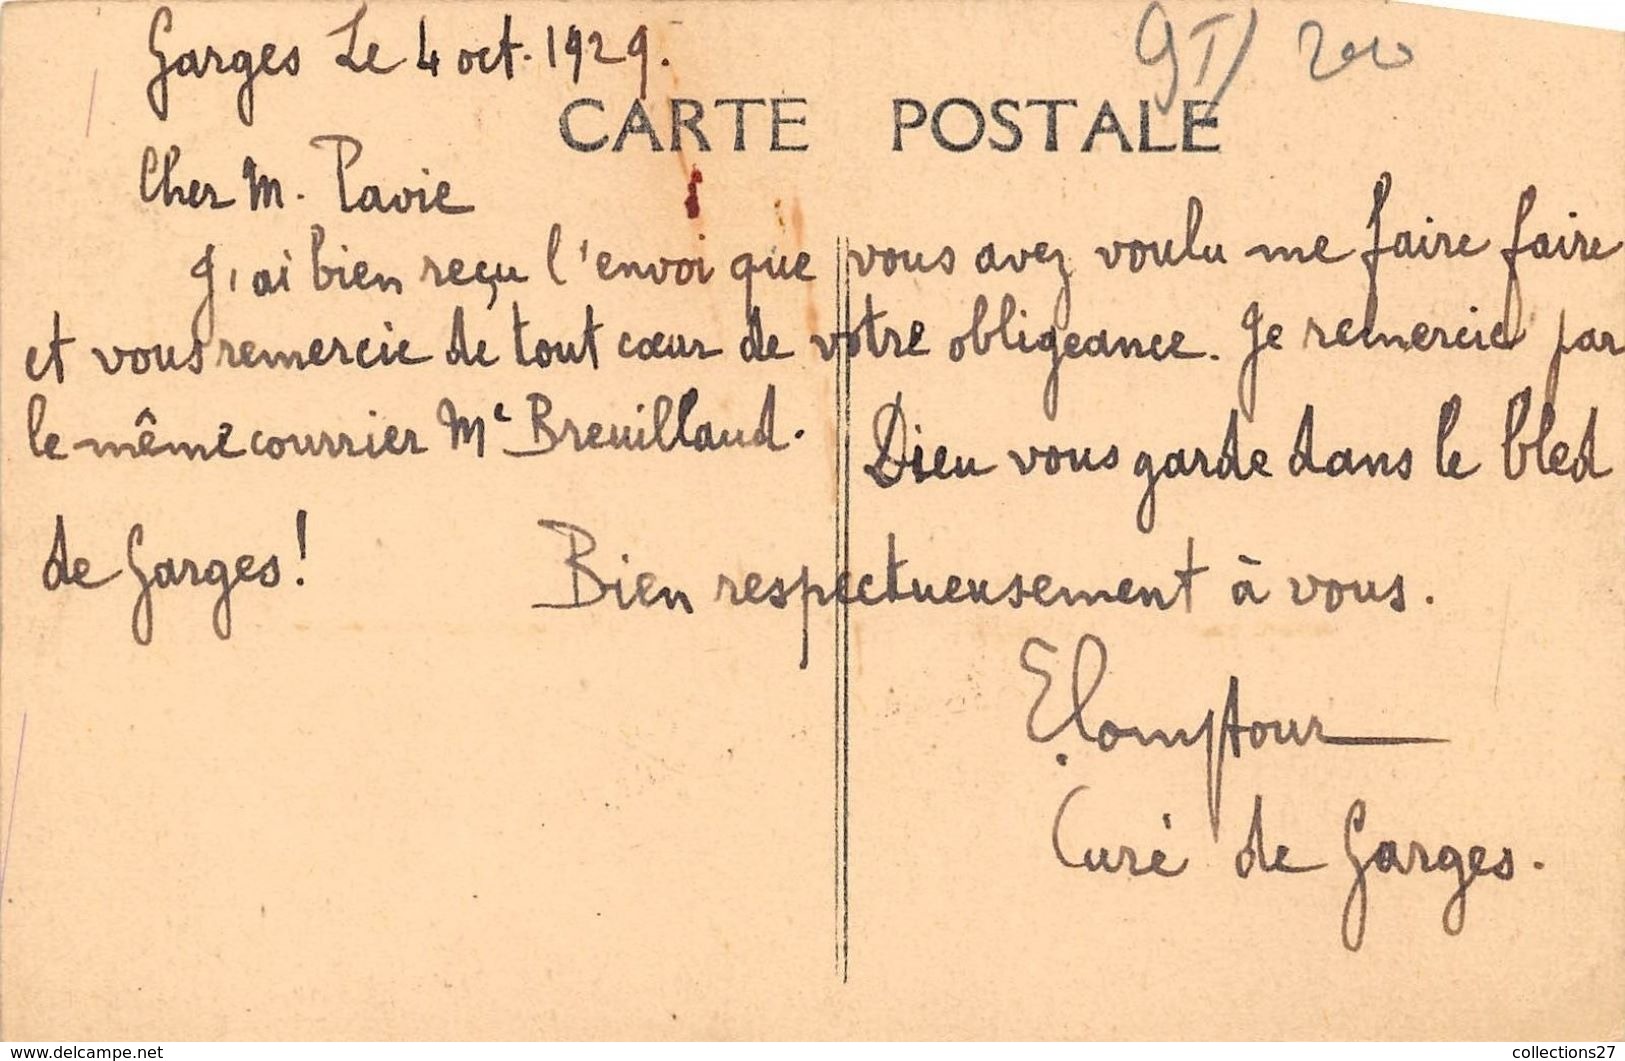 Garges Le 4 oct. 1929.
CARTE POSTALE
Cher M. Pavie
J'ai bien reçu l'envoi que vous avez voulu me faire faire
et vous remercie de tout cœur de votre obligeance. Je remercie par
le même courrier Me Breuillaud. Dieu vous garde dans le bled
de Garges! Bien respectueusement à vous.
Curé de Garges.
www.delcampe.net
collections27